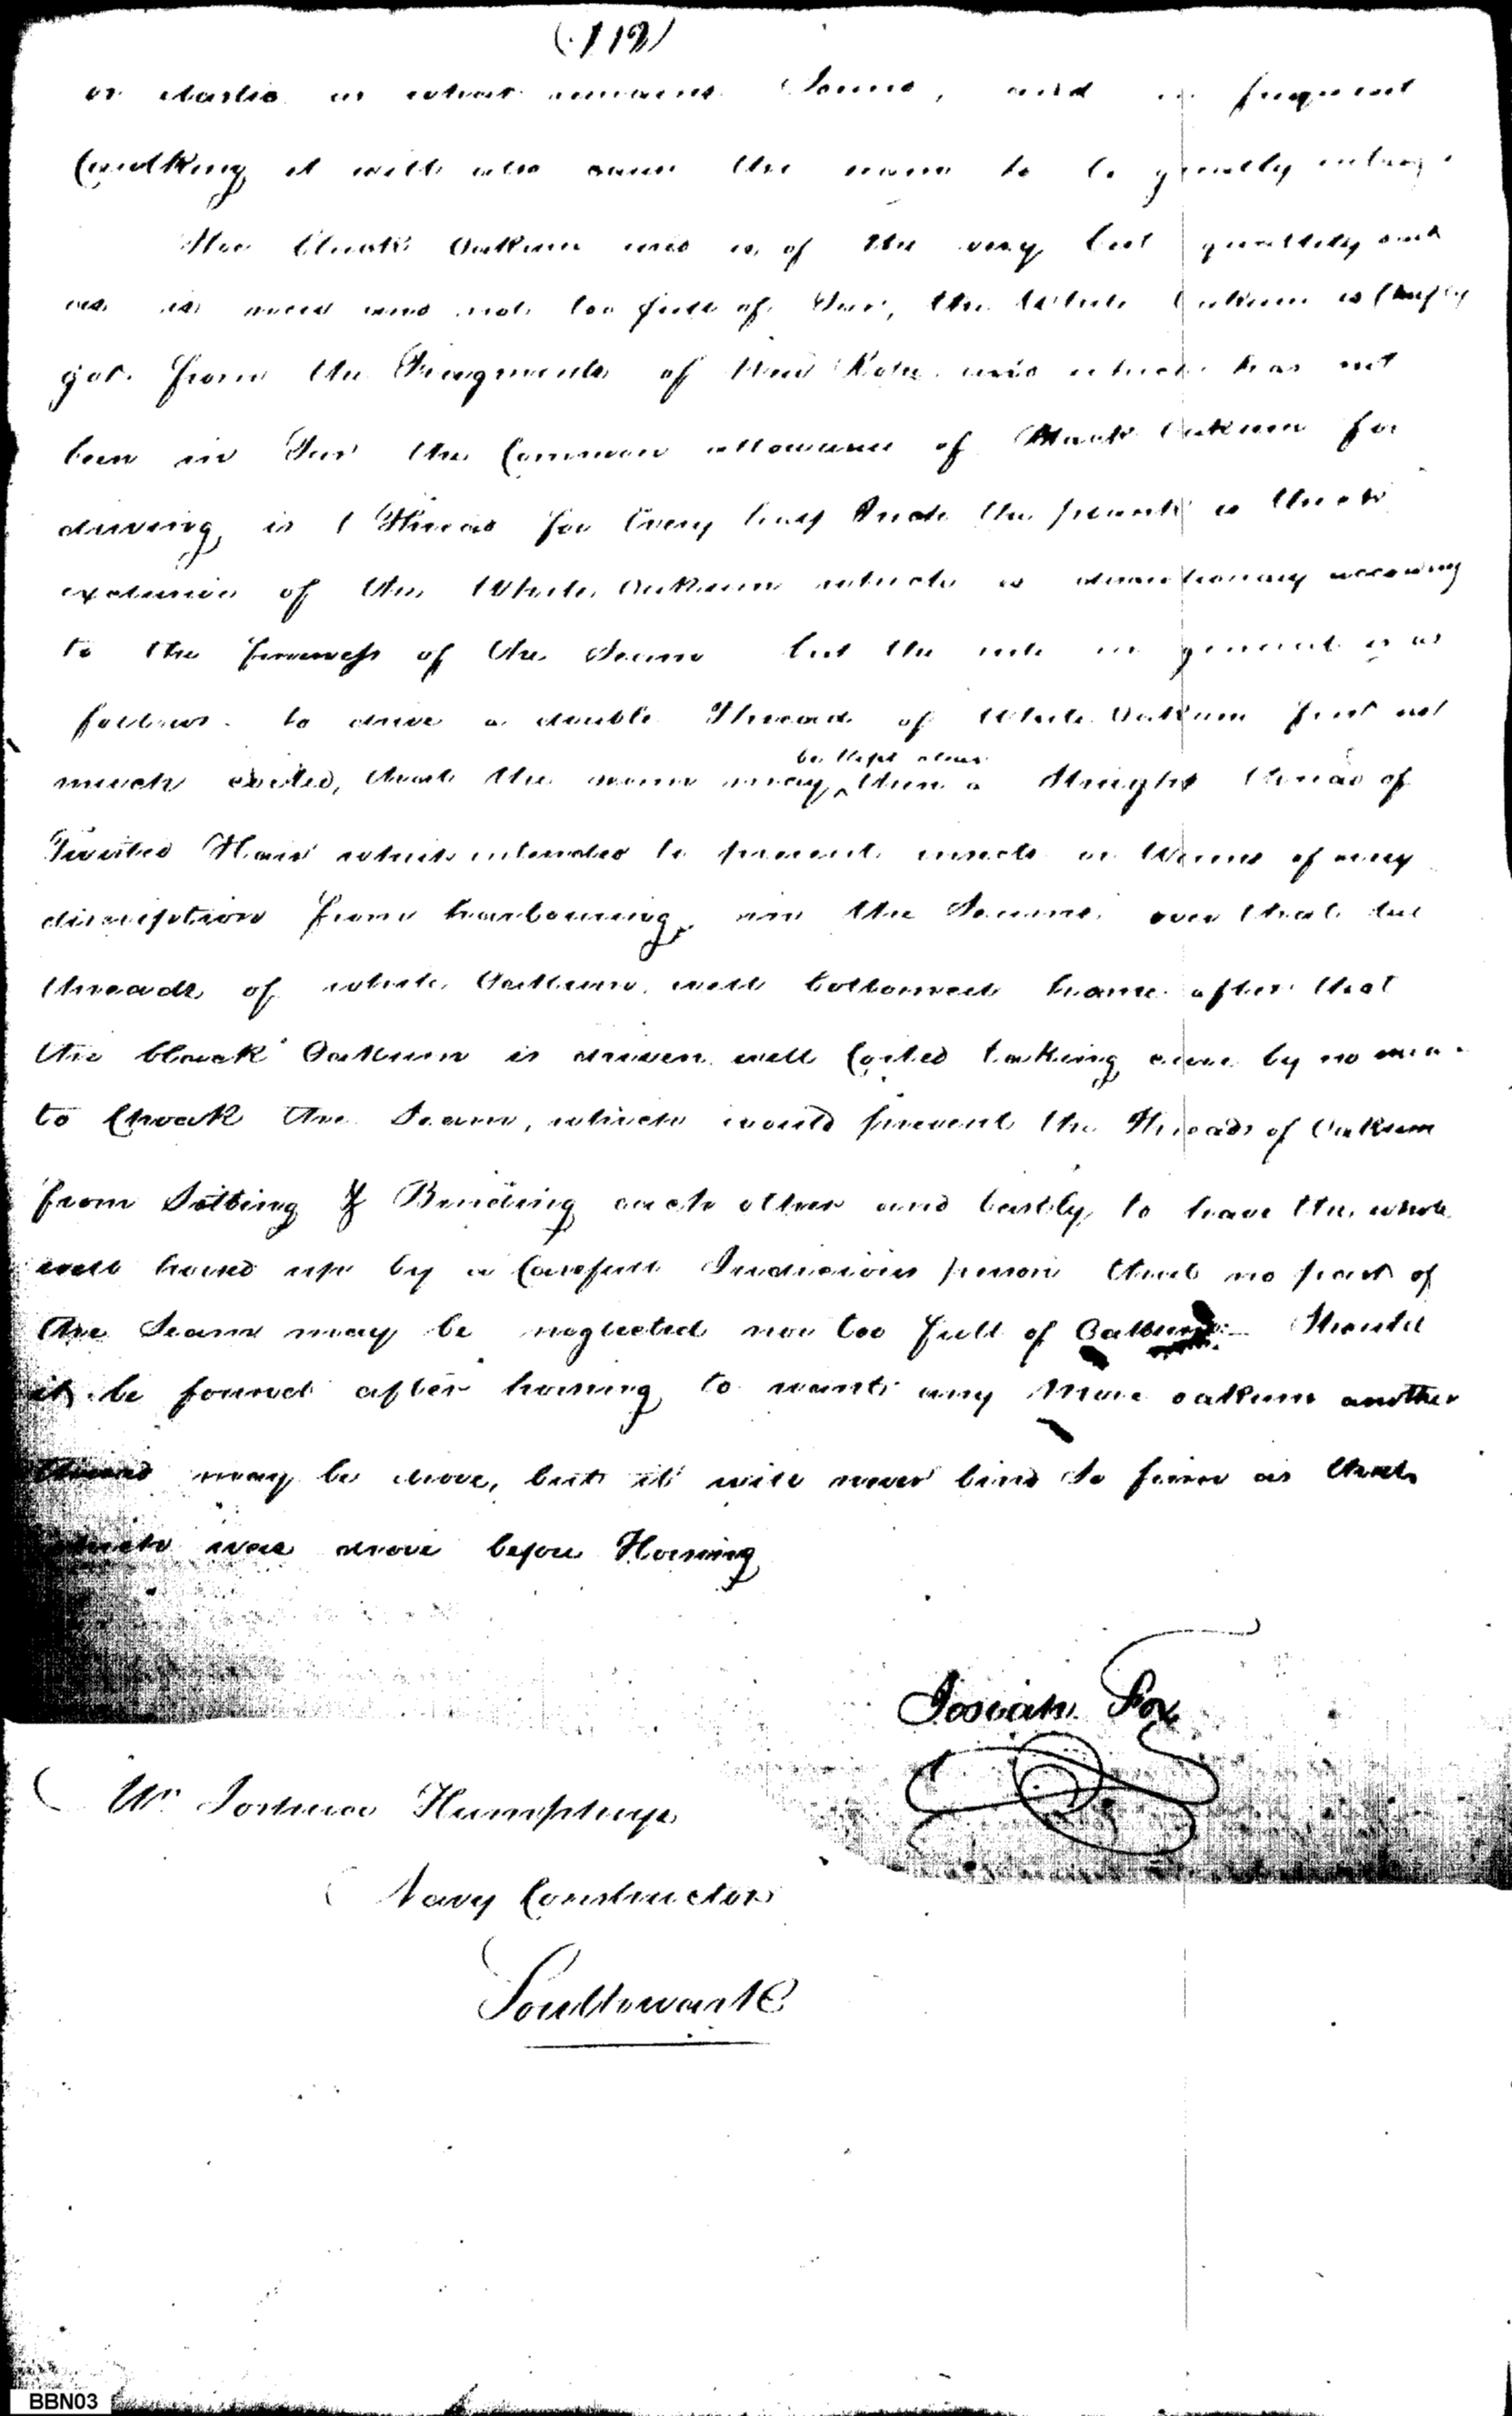 (112)
or elastic as what remains Sound, and in frequent
Caulking it will also cause the seams to be greatly
The Black Oakum used is of the very best quallity and
as is used and not too full of Tar, the White Oakum is Chiefly
got from the Fragments of Rope and which has not
been in Tar the Common allowance of Black Oakum for
driving, is 1 Thread for Every half Inch the plank is thick
exclusive of the White Oakum which is discretionary according
to the fineness of the Seam but the rule in general is as
follows. to drive a double Thread of White Oakum first not
much coiled, that the seam may be Kept clear then a Straight thread of
Twisted Hair which intended to prevent insects or Worms of any
discription from harbouring in the Seams. over that two
threads of white Oakum well bottomed home after that
the black Oakum is driven well Coiled taking care by no
to Choak the Seam, which would prevent the Threads of Oakum
from Setting & Binding each other and lastly, to have the whole
well horsed up by a Carefull Judicious person that no part of
the Seam may be neglected nor too full of Oakum:- Should
it be found after horsing, to want any More oakum another
thread may be drove, but it will never bind So firm as that
which was drove before Horsing
Josiah Fox
Mr Joshua Humphreys
Navy Constructor
Southwark
BBN03